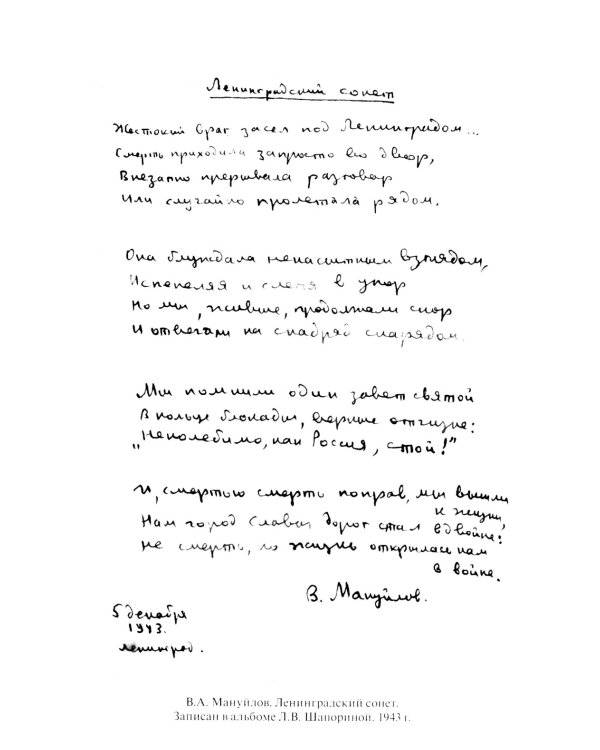 Ленинградский сонет
Жестокий враг засел под Ленинградом...
Смерть приходила запросто во двор,
Внезапно прерывала разговор
Или случайно пролетала рядом.
Она блуждала ненасытным взглядом,
Испепеляя и слепя в упор
Но мы, живые, продолжали спор
И отвечали на снаряд снарядом.
Мы помнили один завет святой
В кольце блокады, верные отчизне:
„Неколебимо, как Россия, стой!"
И, смертью смерть поправ, мы вышли
к жизни,
Нам город Славы дорог стал вдвойне:
Не смерть, но жизнь открылась нам
в войне.
В. Мануйлов.
5 декабря
1943.
Ленинград.
В.А. Мануйлов. Ленинградский сонет.
Записан в альбоме Л.В. Шапориной. 1943 г.